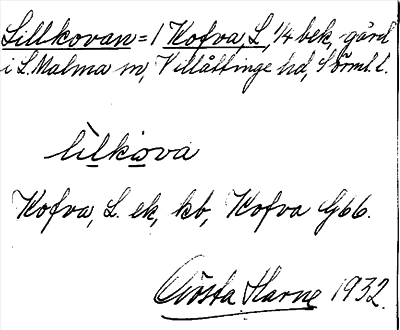 Lillkovan = 1 Kofva, L, 1/4 bek, gård
i L. Malma sn, Villåttinge hd, Sörml. l.
lilkova
Kofva, L. ek, kb, Kofva G66.
Gösta Harne 1932.